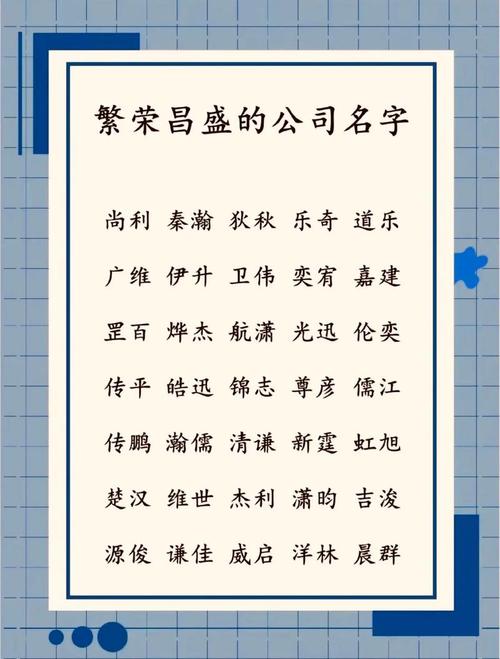 繁荣昌盛的公司名字
尚利 秦瀚 狄秋 乐奇 道乐
广维 伊升 卫伟 奕宥 嘉建
罡百 烨杰 航潇 光迅 伦奕
传平 皓迅 锦志 尊彦 儒江
传鹏 瀚儒 清谦 新霆 虹旭
楚汉 维世 杰利 潇昀 吉浚
源俊 谦佳 威启 洋林 晨群